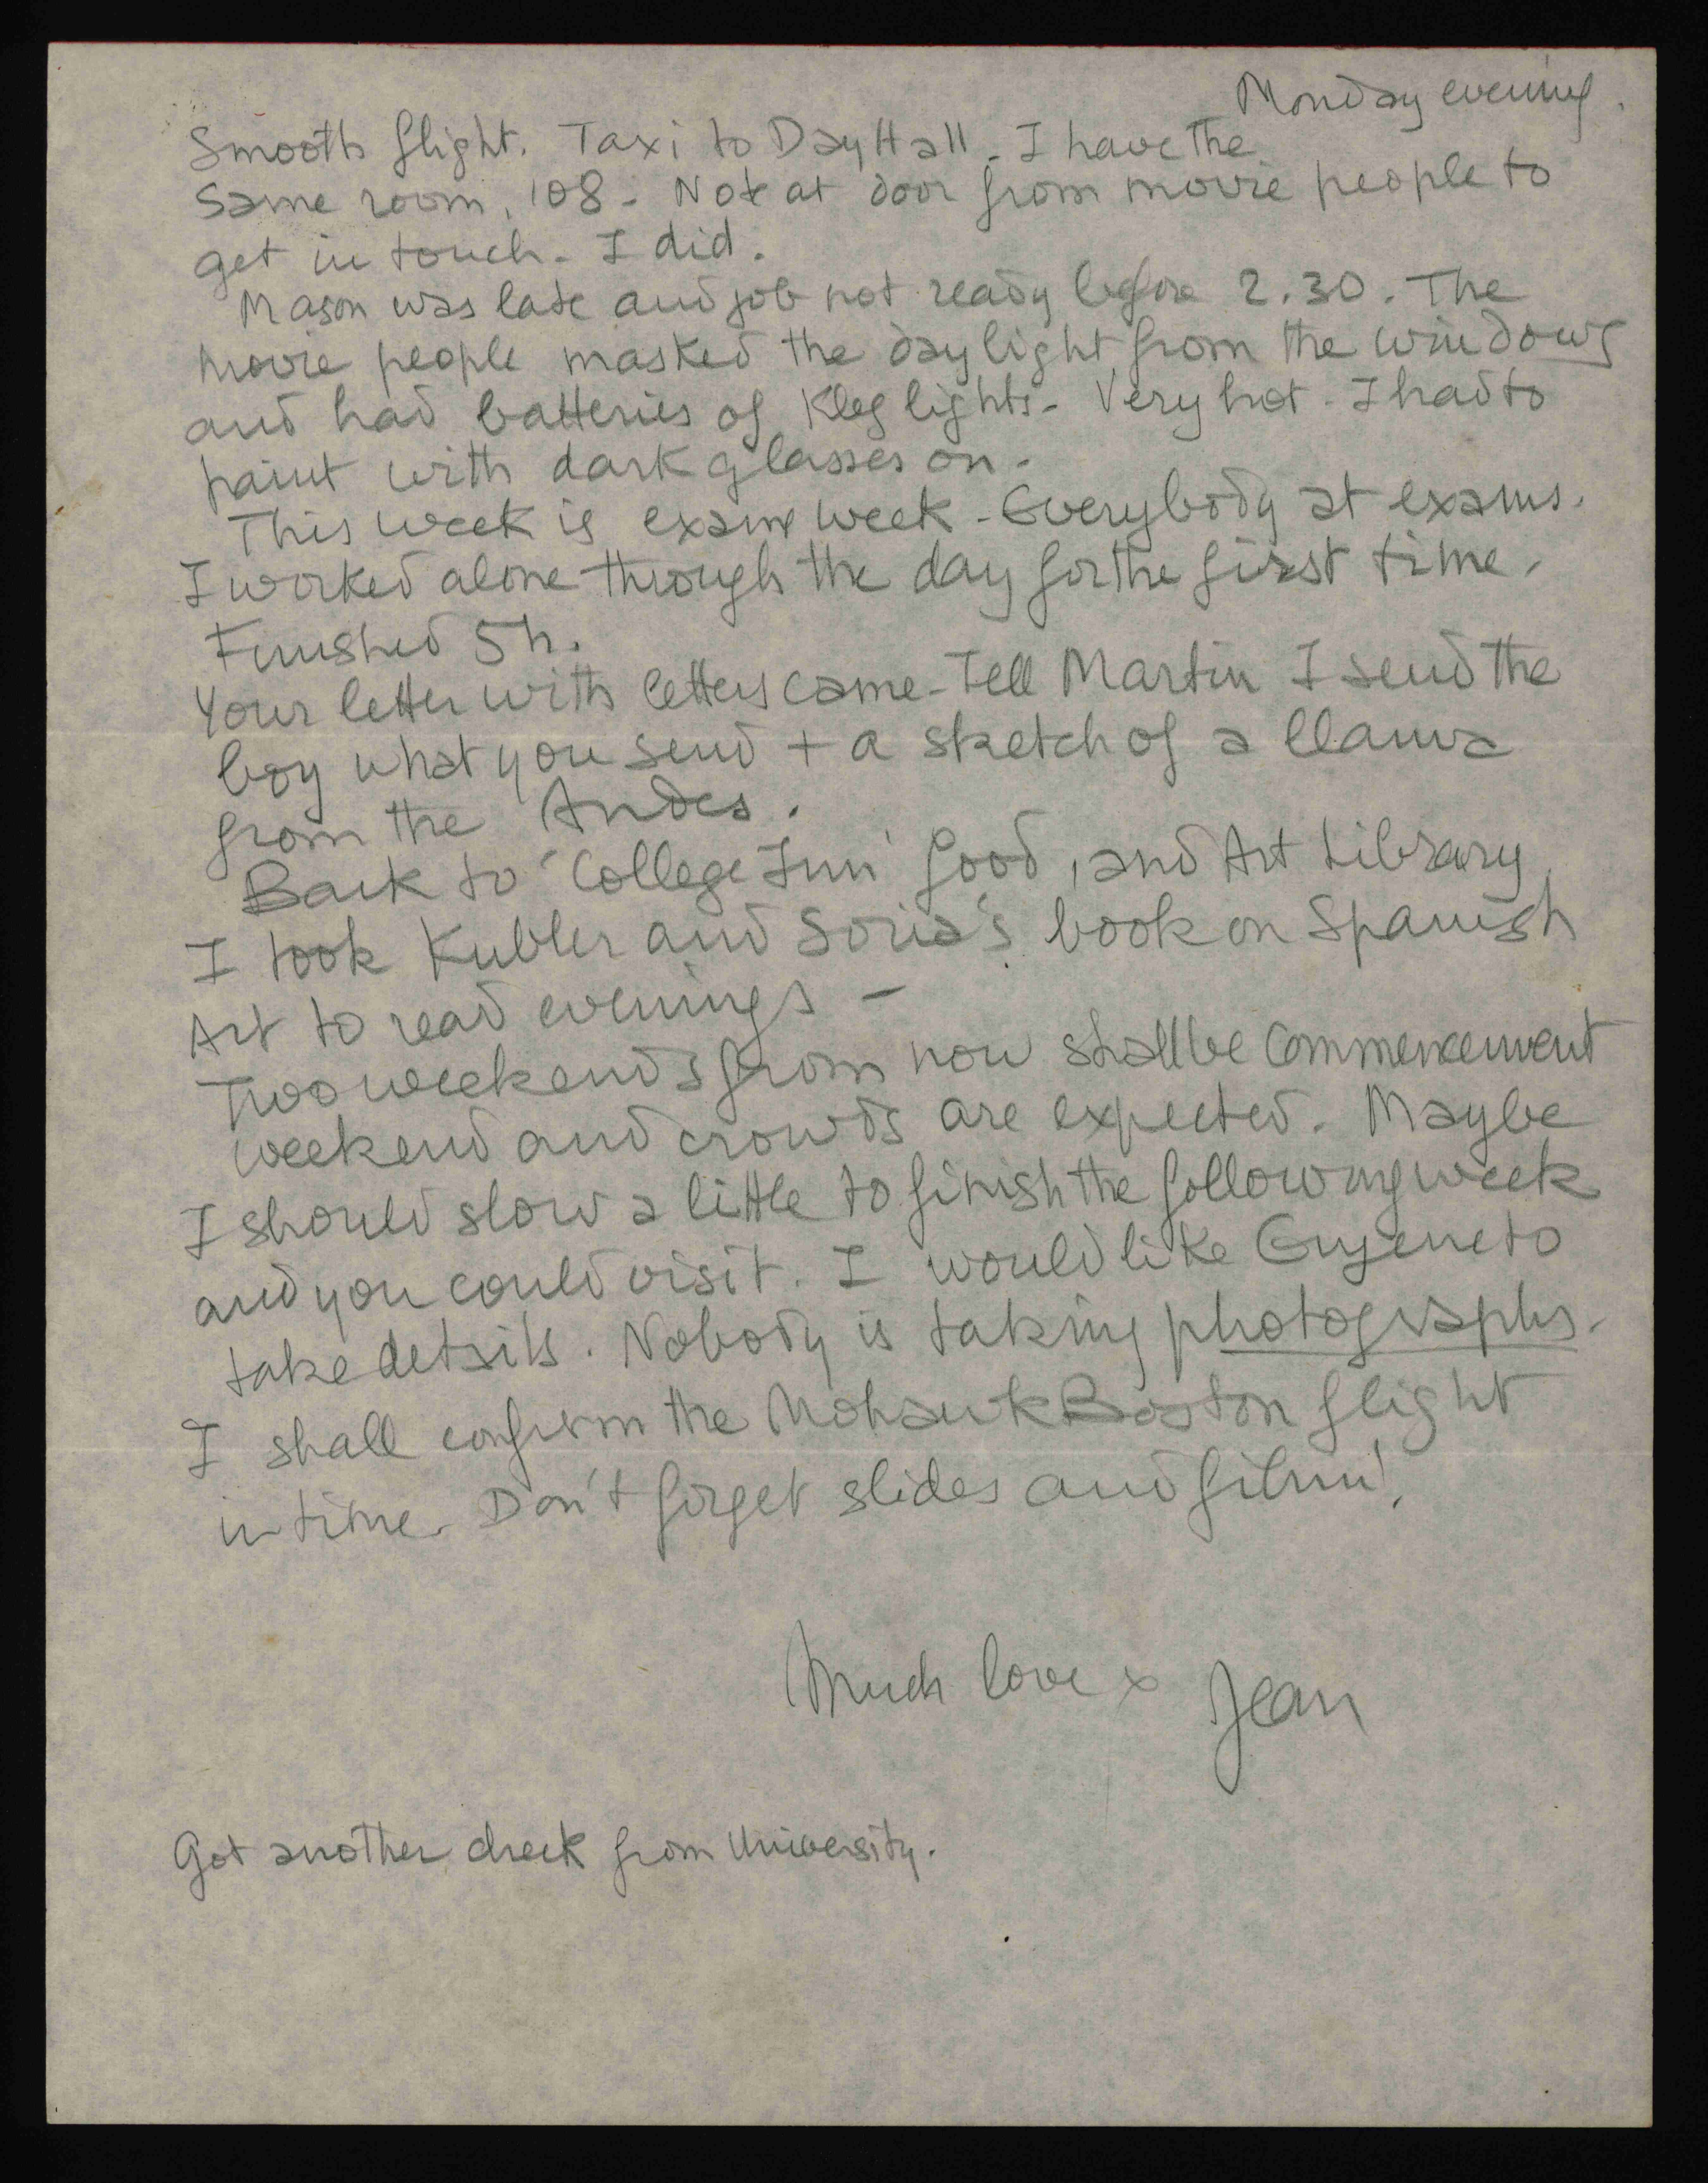 Monday evening.
Smooth flight. Taxi to Day Hall. I have the
same room, 108 - Note at door from movie people to
get in touch. I did.
Mason was late and job not ready before 2.30. The
movie people masked the daylight from the windows
and had batteries of Kleg lights - Very hot - I had to
paint with dark glasses on.
This week is exam week - Everybody at exams.
I worked alone through the day for the first time.
Finished 5 h.
Your letter with letters came - Tell Martin I send the
boy what you send + a sketch of a llama
from the Andes.
Back to 'College Inn' food, and Art Library
I took Kubler and Soria's book on Spanish
Art to read evenings -
Two weekends from now shall be Commencement
weekend and crowds are expected. Maybe
I should slow a little to finish the following week
and you could visit. I would like Eugene to
take details. Nobody is taking photographs.
I shall confirm the Mohawk Boston flight
in time. Don't forget slides and film!
Much love x Jean
Got another check from University.